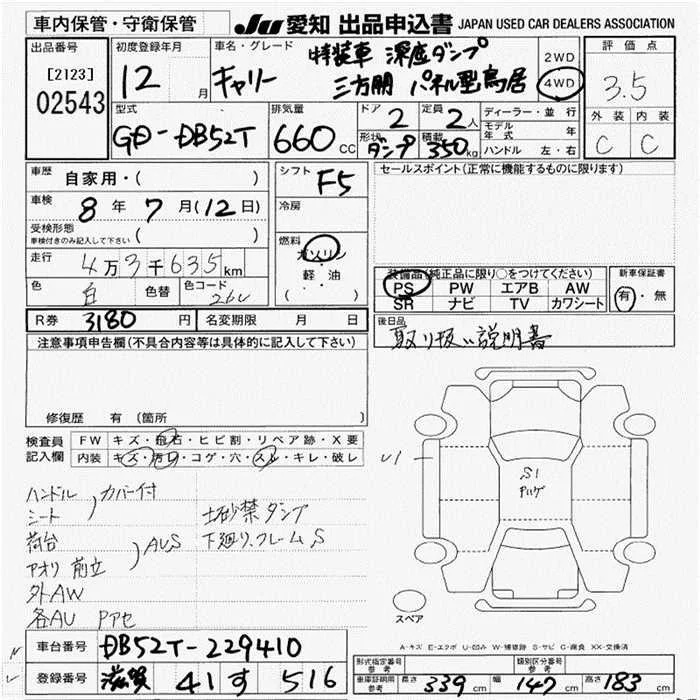 車内保管・守衛保管 JU 愛知 出品申込書 JAPAN USED CAR DEALERS ASSOCIATION
出品番号 初度登録年月 車名・グレード 特装車 深底ダンプ 2WD 評価点
[2123] 12 月 キャリー 三方開 パネル型鳥居 4WD 3.5
02543
型式 排気量 ドア 2 定員 2人 ディーラー・並行 外装 内装
GD-DB52T 660 CC 形状 ダンプ 積載 350kg モデル年式 年 C C
ハンドル 左・右
車歴 自家用・( ) シフト F5 セールスポイント(正常に機能するものに限ります)
車検 8年 7月(12日) 冷房
受検形態 ( )
車検付きのみ記入して下さい
走行 4万3千635km 燃料 ガソリン・軽・油 ( ) 装備品(純正品に限り○をつけてください) 新車保証書
色 白 色替 色コード 26U PS PW エアB AW 有・無
SR ナビ TV カワシート
R券 3180円 名変期限 月 日 後日品
取り扱い説明書
注意事項申告欄(不具合内容等は具体的に記入して下さい)
修復歴 有 (箇所
検査員記入欄 FW キズ・飛石・ヒビ割・リペア跡・X要
内装 キズ・汚れ・コゲ・穴・スレ・キレ・破レ
U1
S1
ハンドル カバー付
シート 土砂禁ダンプ
荷台 AUS 下廻り、フレームS
アオリ 前立
外AW
各AU Pアセ
スペア
A-キズ E-エクボ U-凹み W-補修跡 S-サビ C-腐食 XX-交換済
車台番号 DB52T-229410
登録番号 滋賀 41 す 516
形式指定番号 参考 類別区分番号 参考
車庫証明用 参考 長さ 339cm 幅 147cm 高さ 183cm